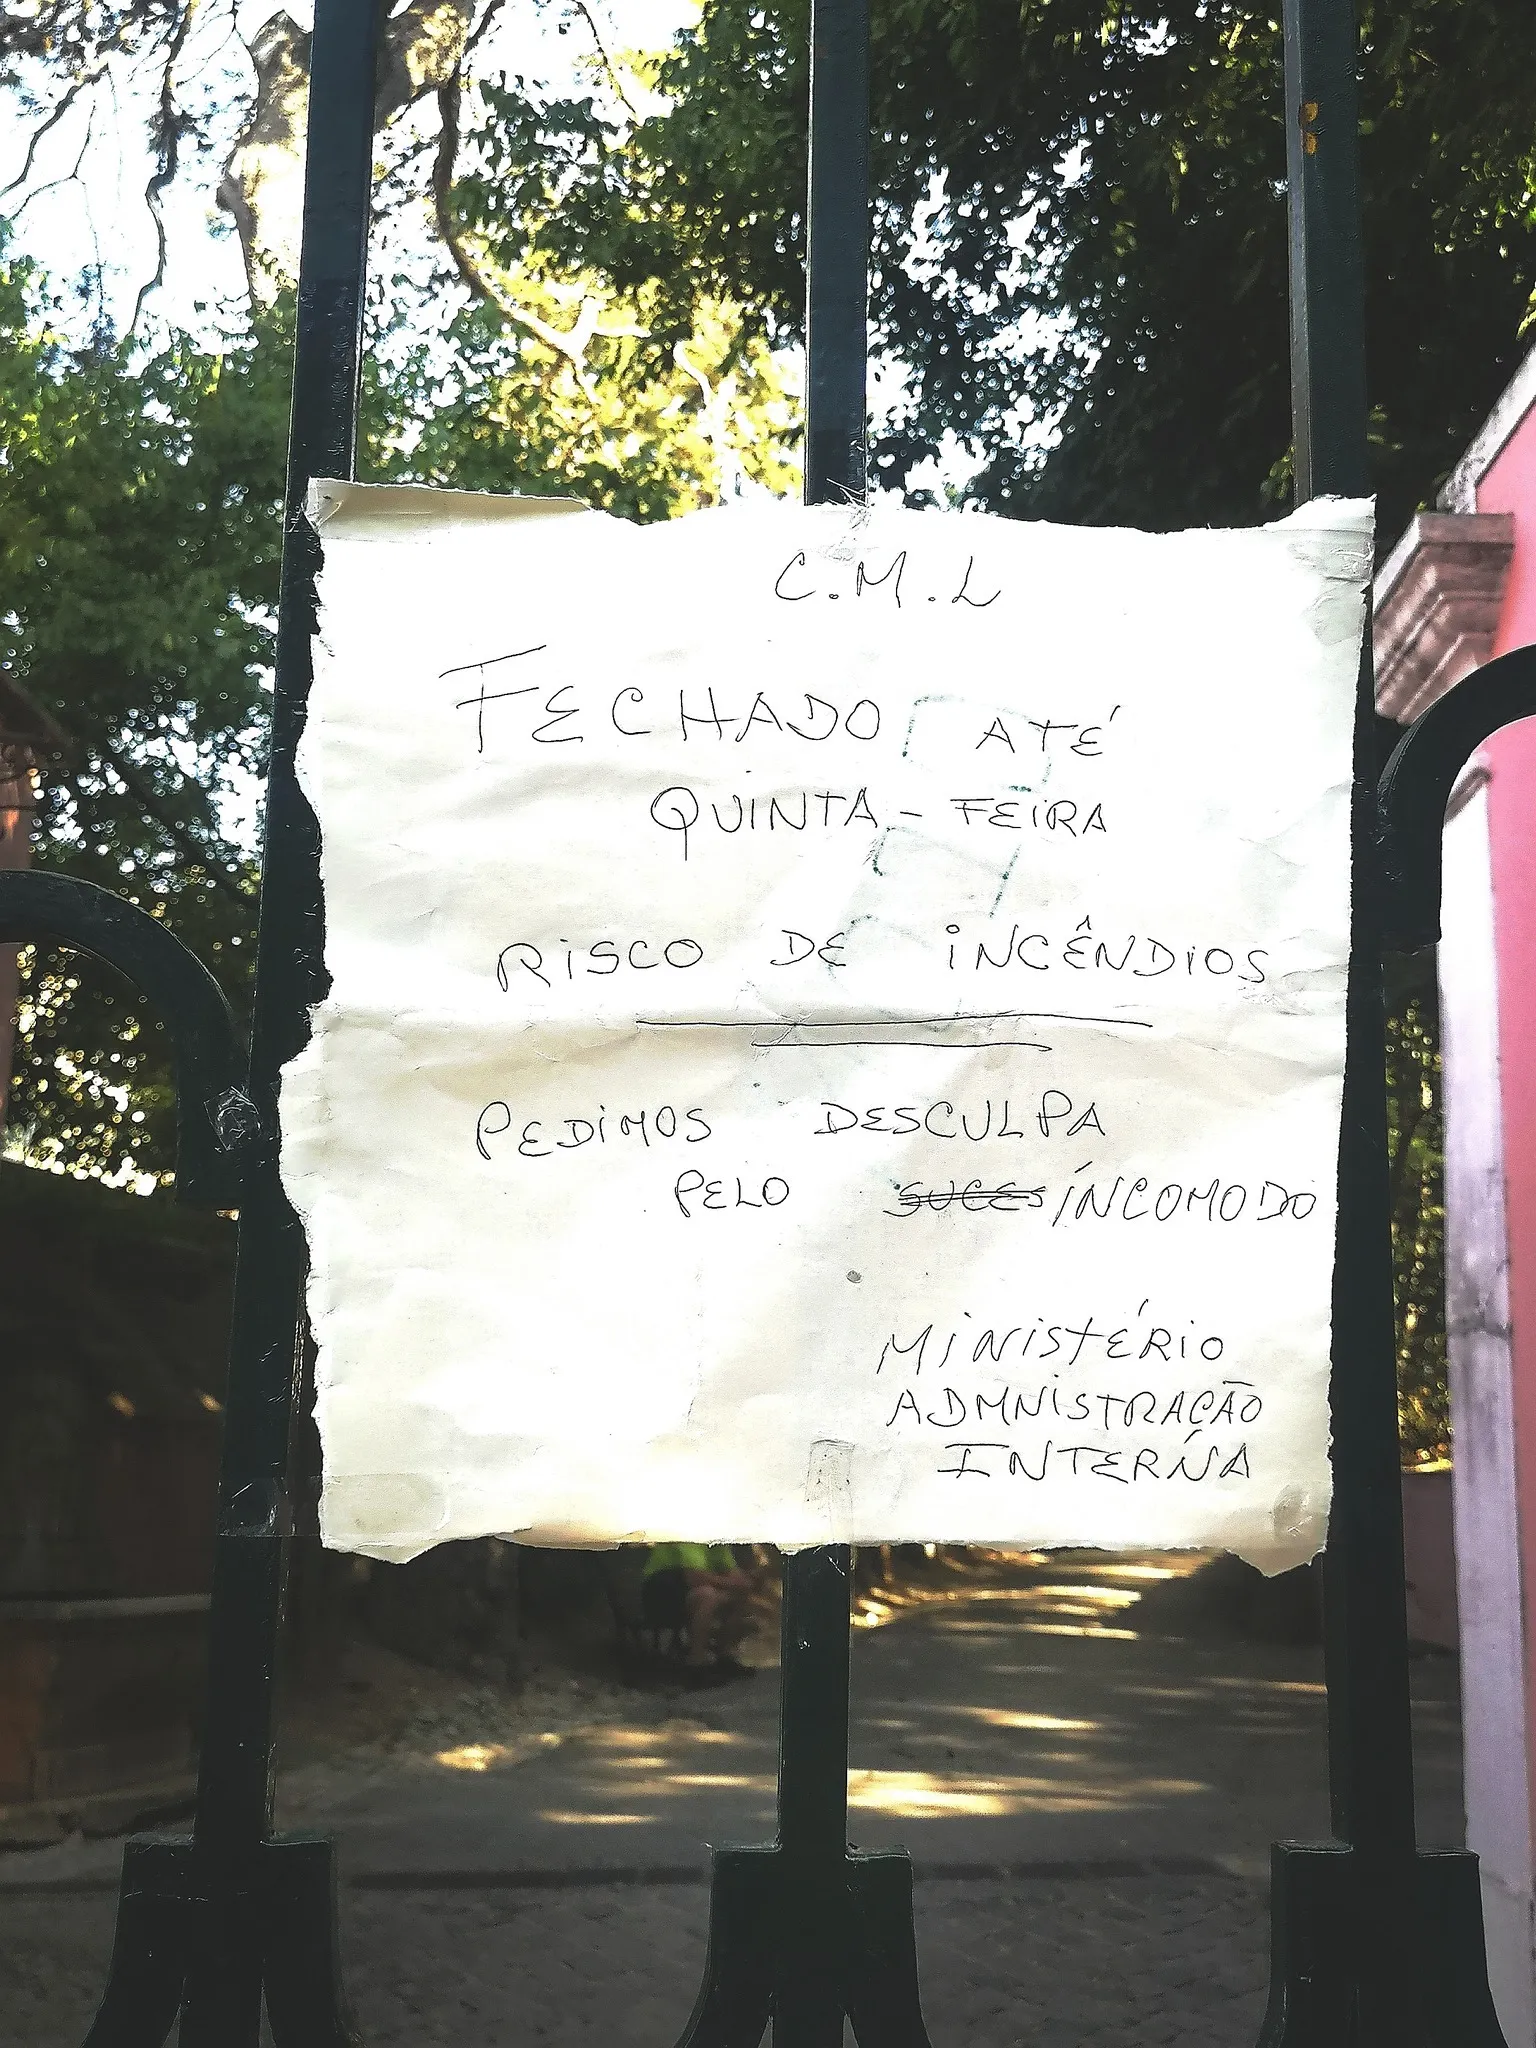 C.M.L
FECHADO ATÉ
QUINTA-FEIRA
RISCO DE INCÊNDIOS
PEDIMOS DESCULPA
PELO SUCES ÍNCOMODO
MINISTÉRIO
ADMNISTRAÇÃO
INTERNA